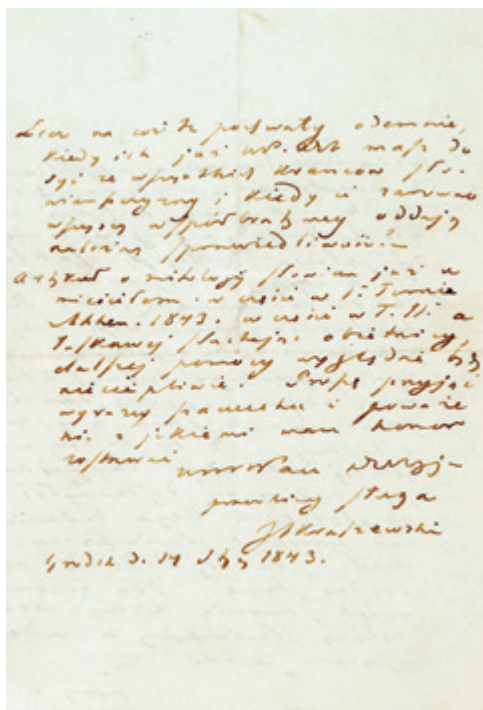 Lecz na cóż te pochwały odemnie,
kiedy ich już masz do
syć ze wszystkich krańców Sło-
wiańszczyzny i kiedy ci zarówno
wszyscy współbratniej oddają
należną sprawiedliwość.
Artykuł o mitologij Słowian już u
mieściłem w części w I. Tomie
Athen. 1843. w części w T. II. a
łaskawej obietnicy,
dalszej pomocy wyglądać będę
niecierpliwie. Proszę przyjąć
wyrazy szacunku i poważa
nia z jakiemi mam honor
zostawać
sługa
JIKraszewski
Gródek d. 14 1843.